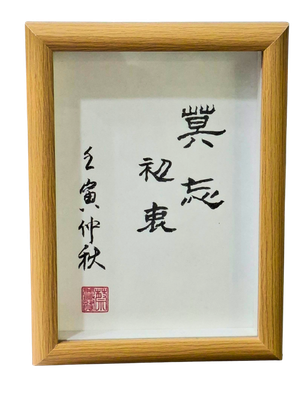 莫忘
初衷
壬寅仲秋